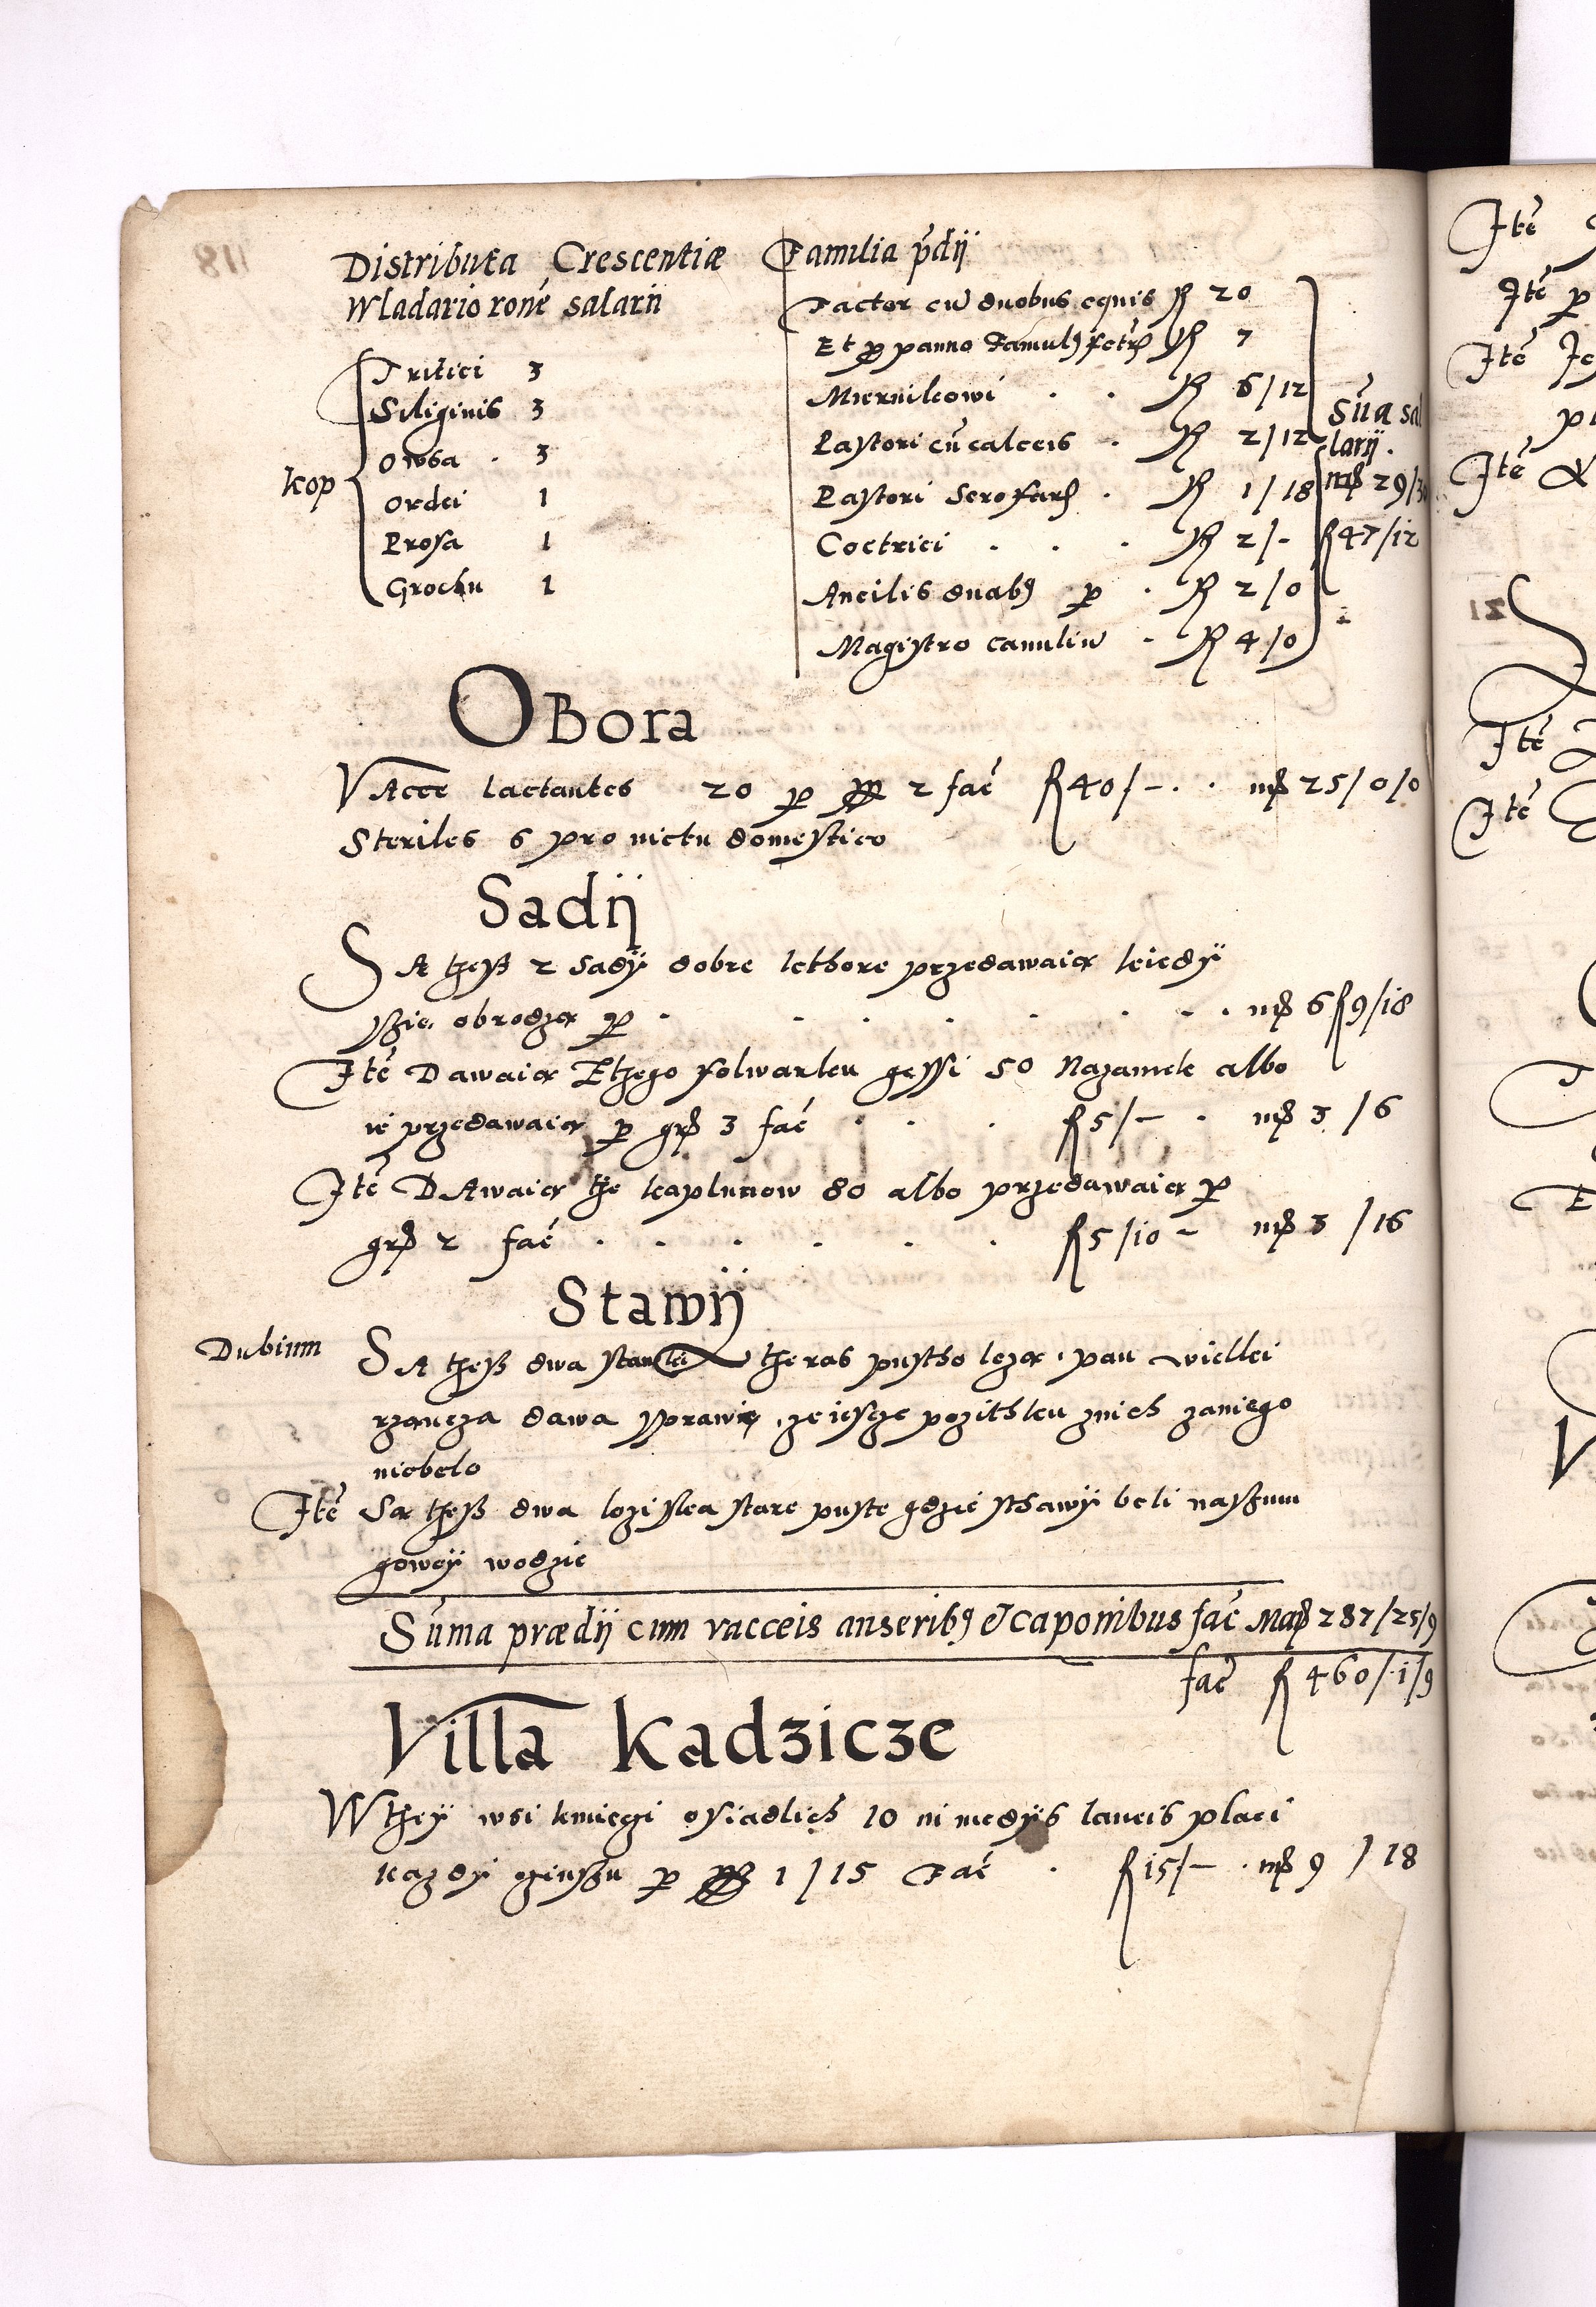 Distributa Crescentiæ
Wladario roně salarii
kop
Tritici 3
Siliginis 3
Owsa . 3
Ordei 1
Prosa 1
Grochu 1
Familia p̃dij
Factor cu duobus equis fl 20
Et p panno fl 7
Miernikowi . . fl 6/12
Pastori cũ calceis . fl 2/12
Pastori Scrofarũ . fl 1/18
Coctrici . . . fl 2/-
Ancilis duabq p . fl 2/0
Magistro canuliũ . fl 4/0
Sũa sal
larij.
mṛ 29/
fl 47/12
Obora
Vacce lactantes 20 p 2 fac̃ fl 40/- . . mṛ 25/0/0
Steriles 6 pro victu domestico
Sadij
Są thesz 2 sadÿ dobre kthore przedawaią kiedÿ
szie obrodzą p . . . . . . . . mṛ 6 fl 9/18
Itẽ Dawaią Zthego folwarku gessi 50 Nazamek albo
ie przedawaią p grṛ 3 fac̃ . . . fl 5/- . mṛ 3 /6
Itẽ DAwaią the kaplunow 80 albo przedawaią p
grṛ 2 fac̃ . . . . . . fl 5/10 - mṛ 3 /16
Stawij
Dubium
SA thesz dwa stawki theras pustho lezą, pan wielki
rzancza dawa sprawię, ze iescze pozithku znich zaniego
niebelo
Itẽ Są thesz dwa loziska stare puste gdzie sthawÿ beli naszum
gowej wodzie
Sũma prædij cum vacceis anseribq & caponibus fac̃ Maṛ 287/25/9
fac̃ fl 460/1/9
Villa Kadzicze
W theÿ wsi kmiegi osiadlich 10 in medÿs laneis placi
kazdÿ ginszu p 1/15 Fac̃ . fl 15/- . mṛ 9 /18